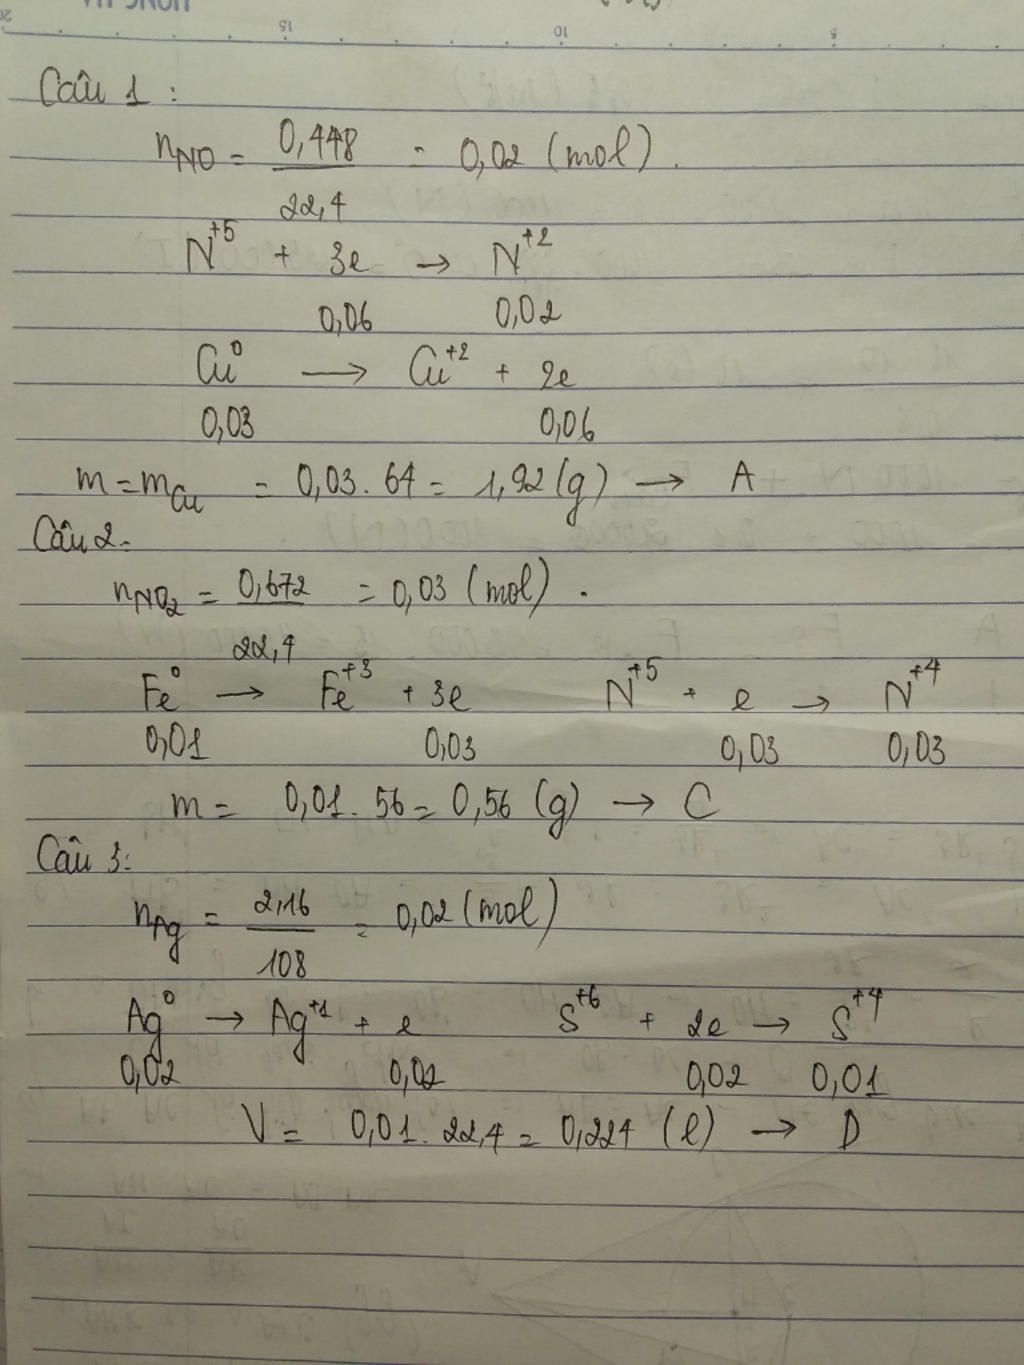 15 10 5
Câu 1 :
nNO = 0,448 / 22,4 = 0,02 (mol).
N⁺⁵ + 3e → N⁺²
0,06 0,02
Cu⁰ → Cu⁺² + 2e
0,03 0,06
m = mCu = 0,03 . 64 = 1,92 (g) → A
Câu 2:
nNO₂ = 0,672 / 22,4 = 0,03 (mol).
Fe⁰ → Fe⁺³ + 3e N⁺⁵ + e → N⁺⁴
0,01 0,03 0,03 0,03
m = 0,01 . 56 = 0,56 (g) → C
Câu 3:
nAg = 2,16 / 108 = 0,02 (mol)
Ag⁰ → Ag⁺¹ + e S⁺⁶ + 2e → S⁺⁴
0,02 0,02 0,02 0,01
V = 0,01 . 22,4 = 0,224 (l) → D